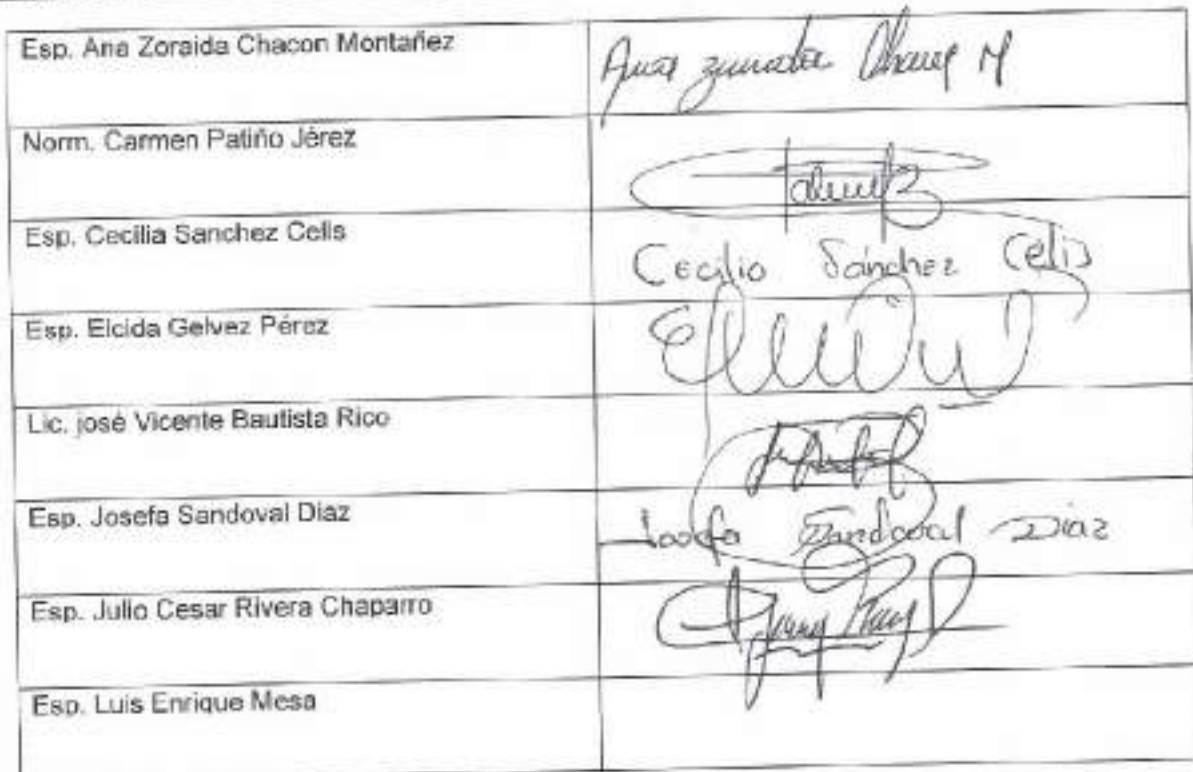 Esp. Ana Zoraida Chacon Montañez
Norm. Carmen Patiño Jérez
Esp. Cecilia Sanchez Celis
Cecilia Sánchez Celis
Esp. Elcida Gelvez Pérez
Lic. josé Vicente Bautista Rico
Esp. Josefa Sandoval Diaz
Josefa Sandoval Diaz
Esp. Julio Cesar Rivera Chaparro
Esp. Luis Enrique Mesa